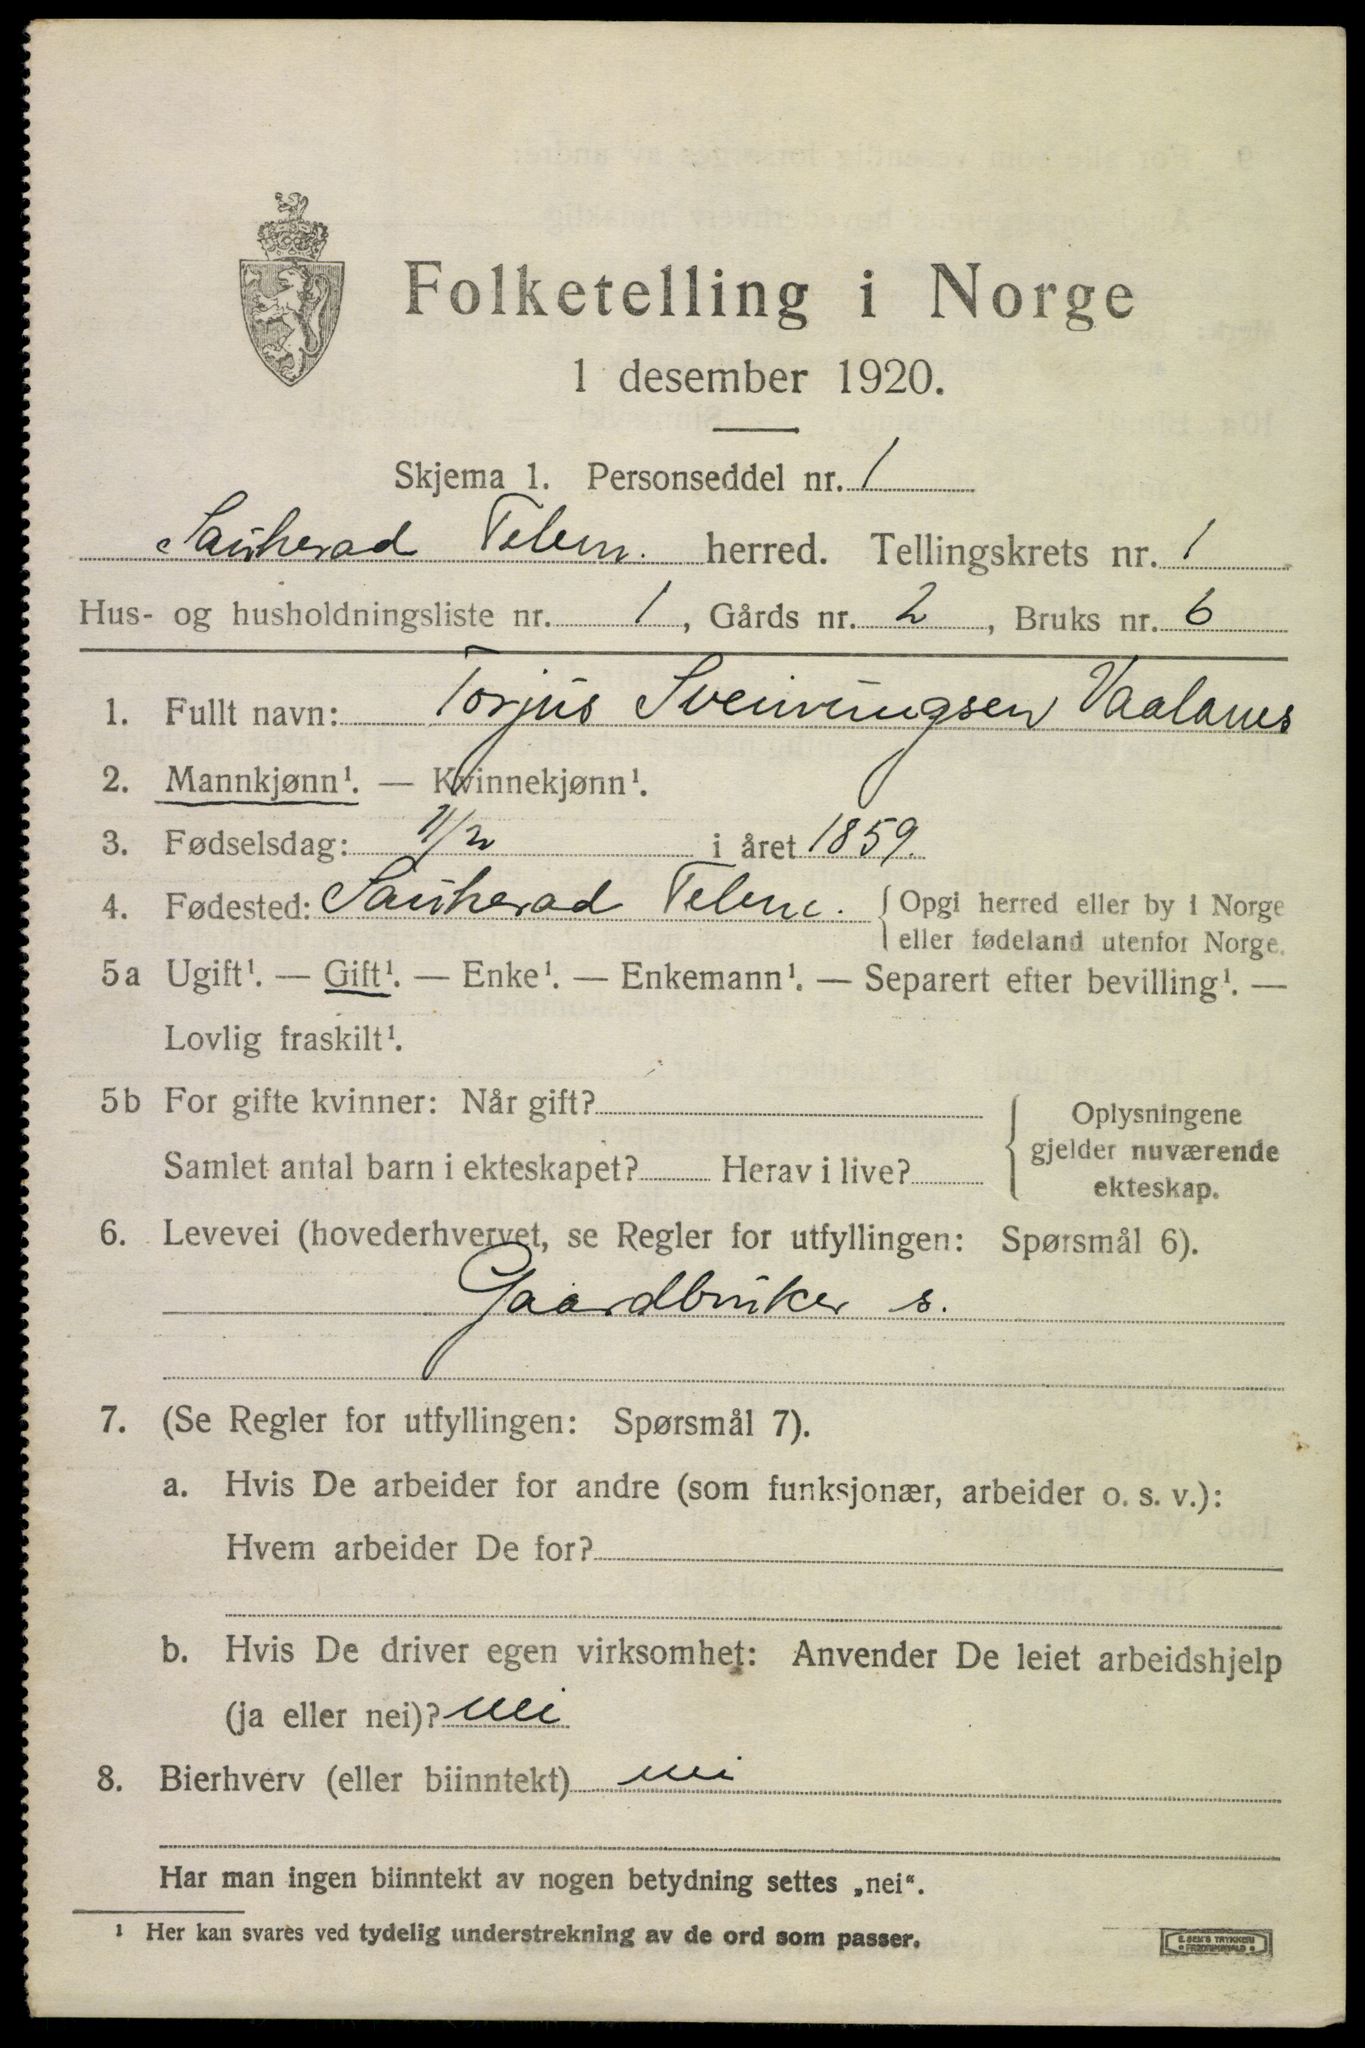 Folketelling i Norge
1 desember 1920.
Skjema 1. Personseddel nr. 1
Sauherad Telem. herred. Tellingskrets nr. 1
Hus- og husholdningsliste nr. 1, Gårds nr. 2, Bruks nr. 6
1. Fullt navn: Torjus Sveinungsen
2. Mannkjønn¹. — Kvinnekjønn¹.
3. Fødselsdag: i året 1859.
4. Fødested: Sauherad Telem. { Opgi herred eller by i Norge
eller fødeland utenfor Norge.
5a Ugift¹. — Gift¹. — Enke¹. — Enkemann¹. — Separert efter bevilling¹. —
Lovlig fraskilt¹.
5b For gifte kvinner: Når gift?
Samlet antal barn i ekteskapet? Herav i live?
{ Oplysningene
gjelder nuværende
ekteskap.
6. Levevei (hovederhvervet, se Regler for utfyllingen: Spørsmål 6).
Gaardbruker s.
7. (Se Regler for utfyllingen: Spørsmål 7).
a. Hvis De arbeider for andre (som funksjonær, arbeider o. s. v.):
Hvem arbeider De for?
b. Hvis De driver egen virksomhet: Anvender De leiet arbeidshjelp
(ja eller nei)? nei
8. Bierhverv (eller biinntekt) nei
Har man ingen biinntekt av nogen betydning settes „nei“.
¹ Her kan svares ved tydelig understrekning av de ord som passer.